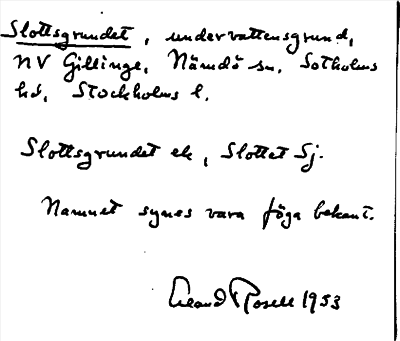 Slottsgrundet, undervattensgrund,
NV Gillinge, Nämdö sn, Sotholms
hd, Stockholms l.
Slottsgrundet ek, Slottet Sj.
Namnet synes vara föga bekant.
Erland Rosell 1953